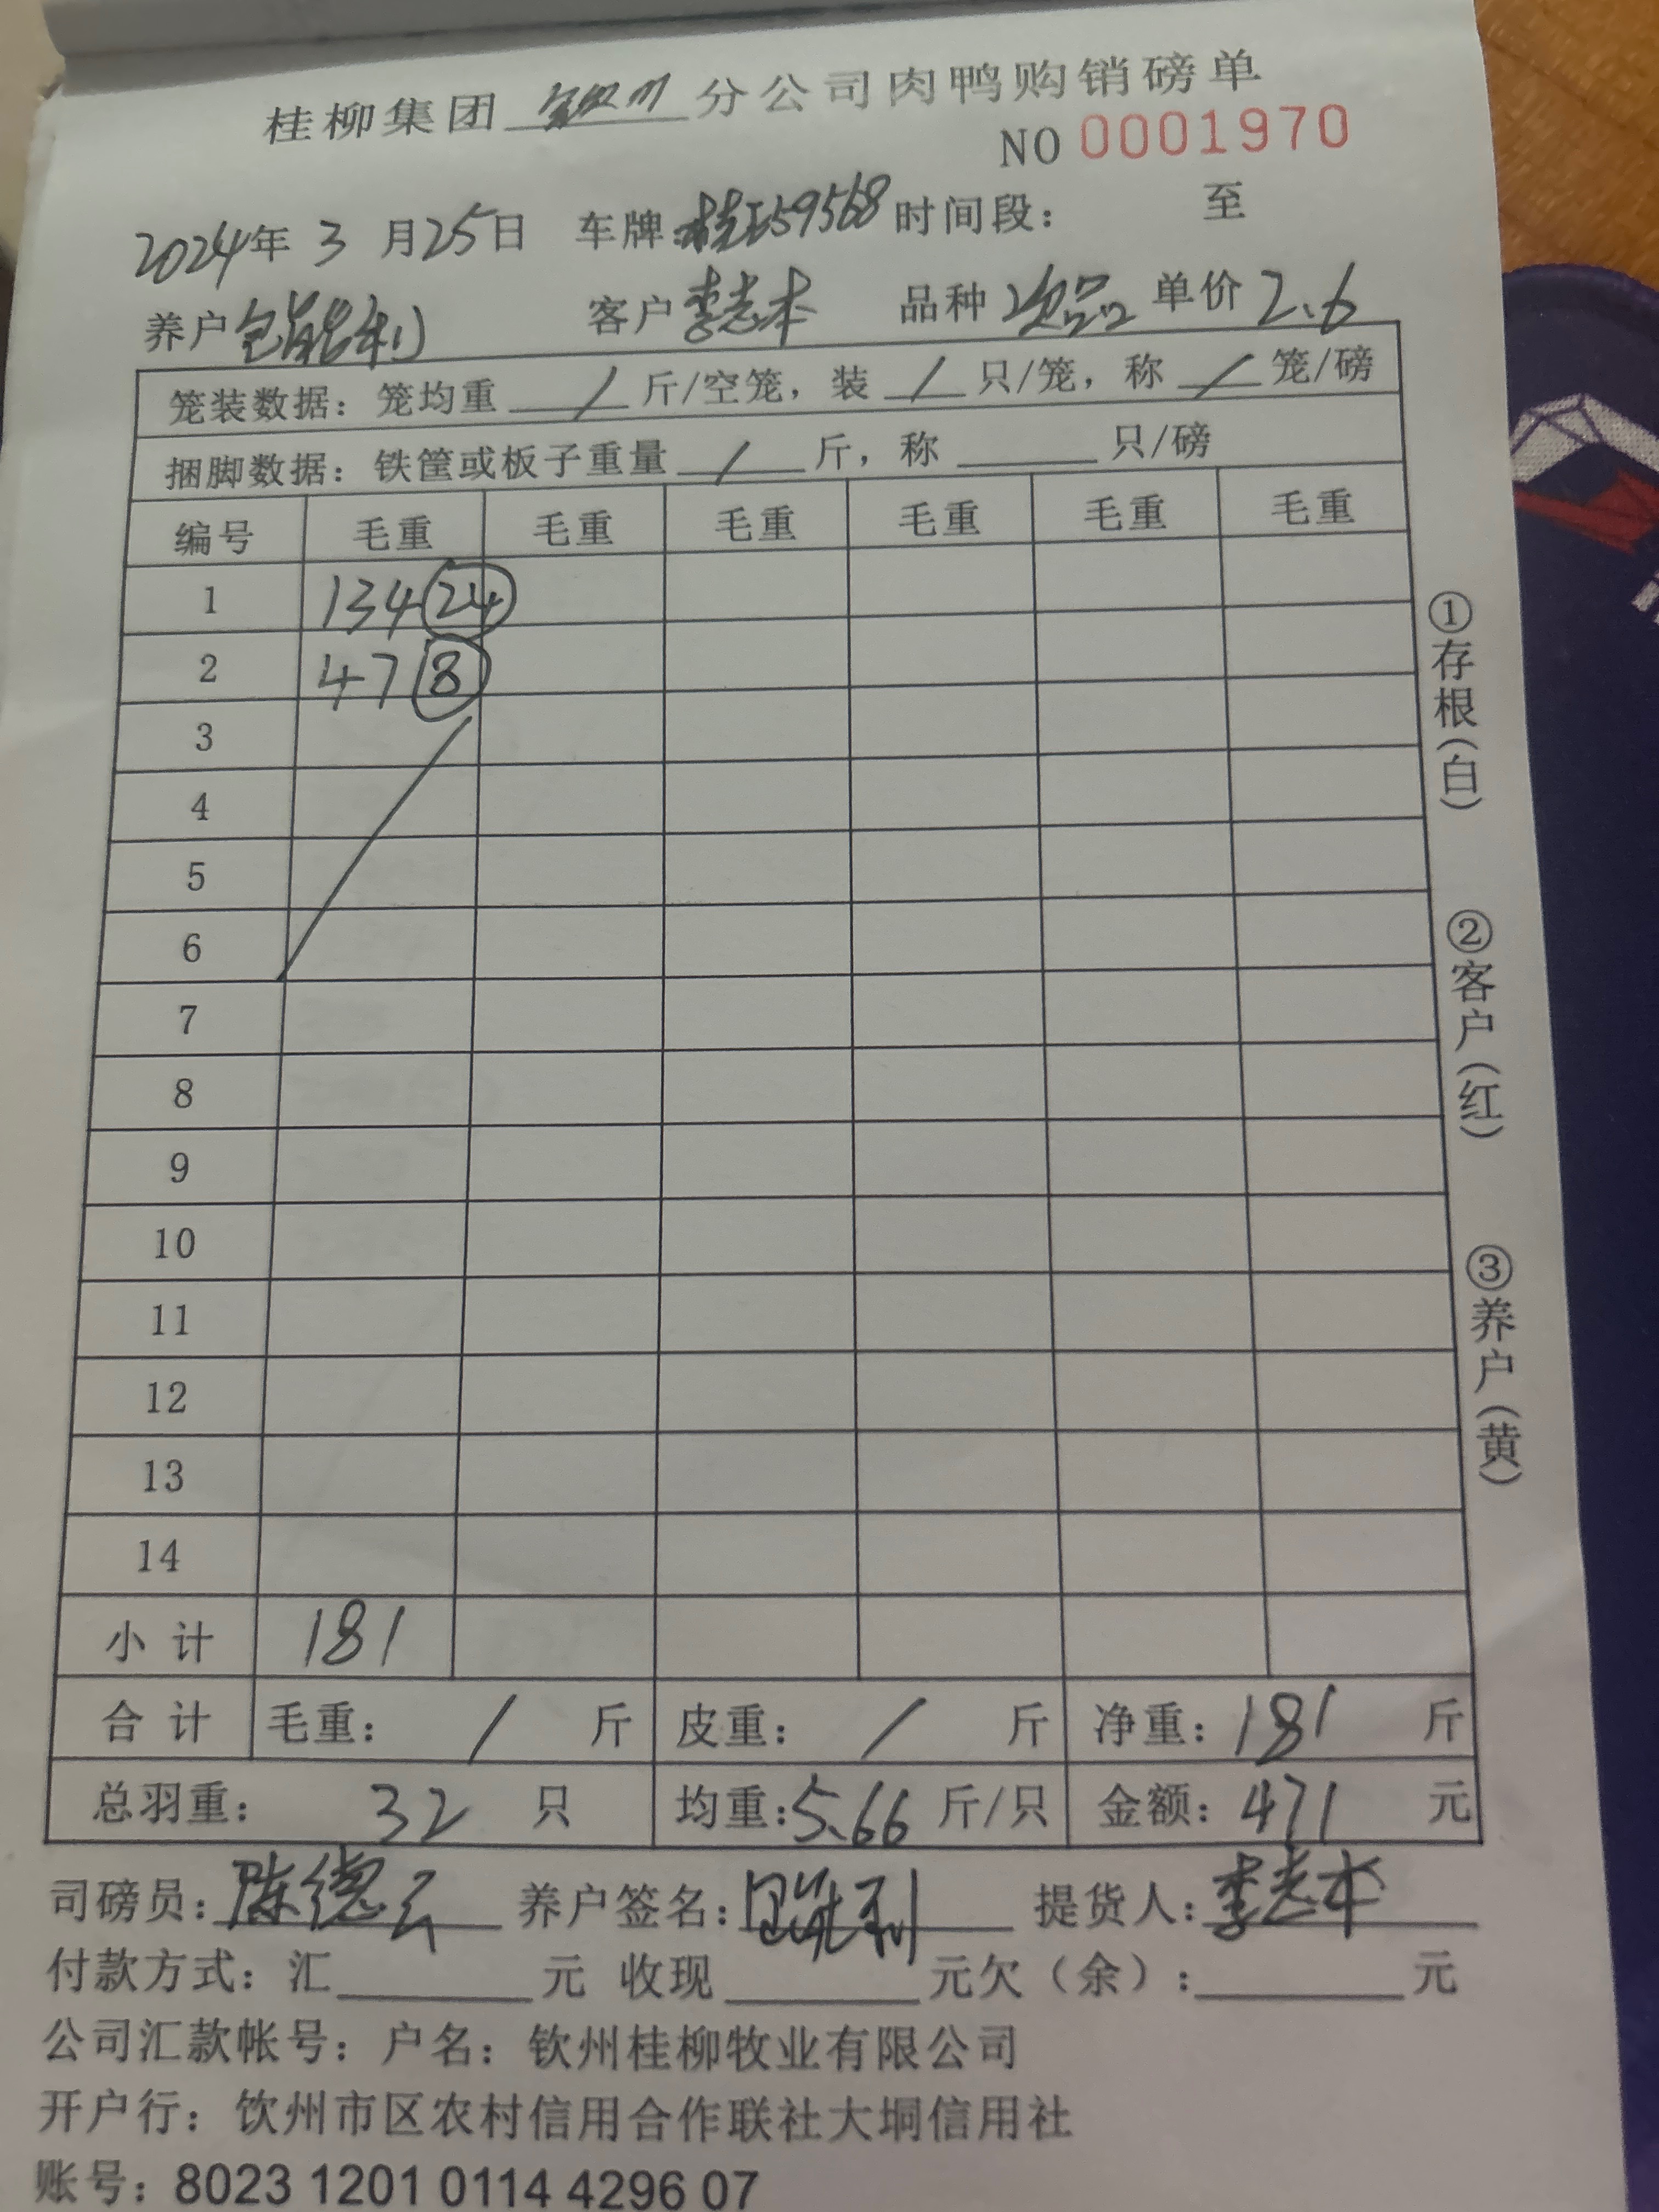 桂柳集团 钦州 分公司肉鸭购销磅单
NO 0001970
2024年 3 月25日 车牌: 59568 时间段: 至
养户 客户 李志本 品种 次品 单价 2.6
笼装数据: 笼均重 / 斤/空笼, 装 / 只/笼, 称 / 笼/磅
捆脚数据: 铁筐或板子重量 / 斤, 称 只/磅
编号 毛重 毛重 毛重 毛重 毛重 毛重
1 134 24
2 47 8
3
4
5
6
7
8
9
10
11
12
13
14
小计 181
合计 毛重: / 斤 皮重: / 斤 净重: 181 斤
总羽重: 32 只 均重: 5.66 斤/只 金额: 471 元
①存根(白)
②客户(红)
③养户(黄)
司磅员: 陈德云 养户签名: 提货人: 李志本
付款方式: 汇 元 收现 元欠(余): 元
公司汇款帐号: 户名: 钦州桂柳牧业有限公司
开户行: 钦州市区农村信用合作联社大垌信用社
账号: 8023 1201 0114 4296 07